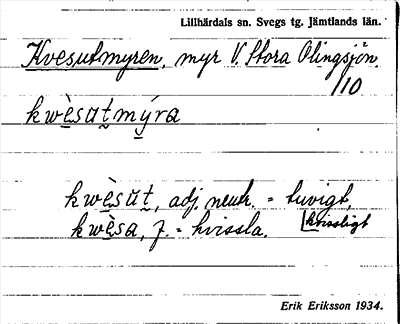 Lillhärdals sn. Svegs tg. Jämtlands län.
Kvesutmyren, myr V. Stora Olingsjön.
1/10
kwèsut̰mýra
kwèsŭt̰, adj. neutr. = tuvigt,
kwèsa, f. = kvissla. kvissligt
Erik Eriksson 1934.